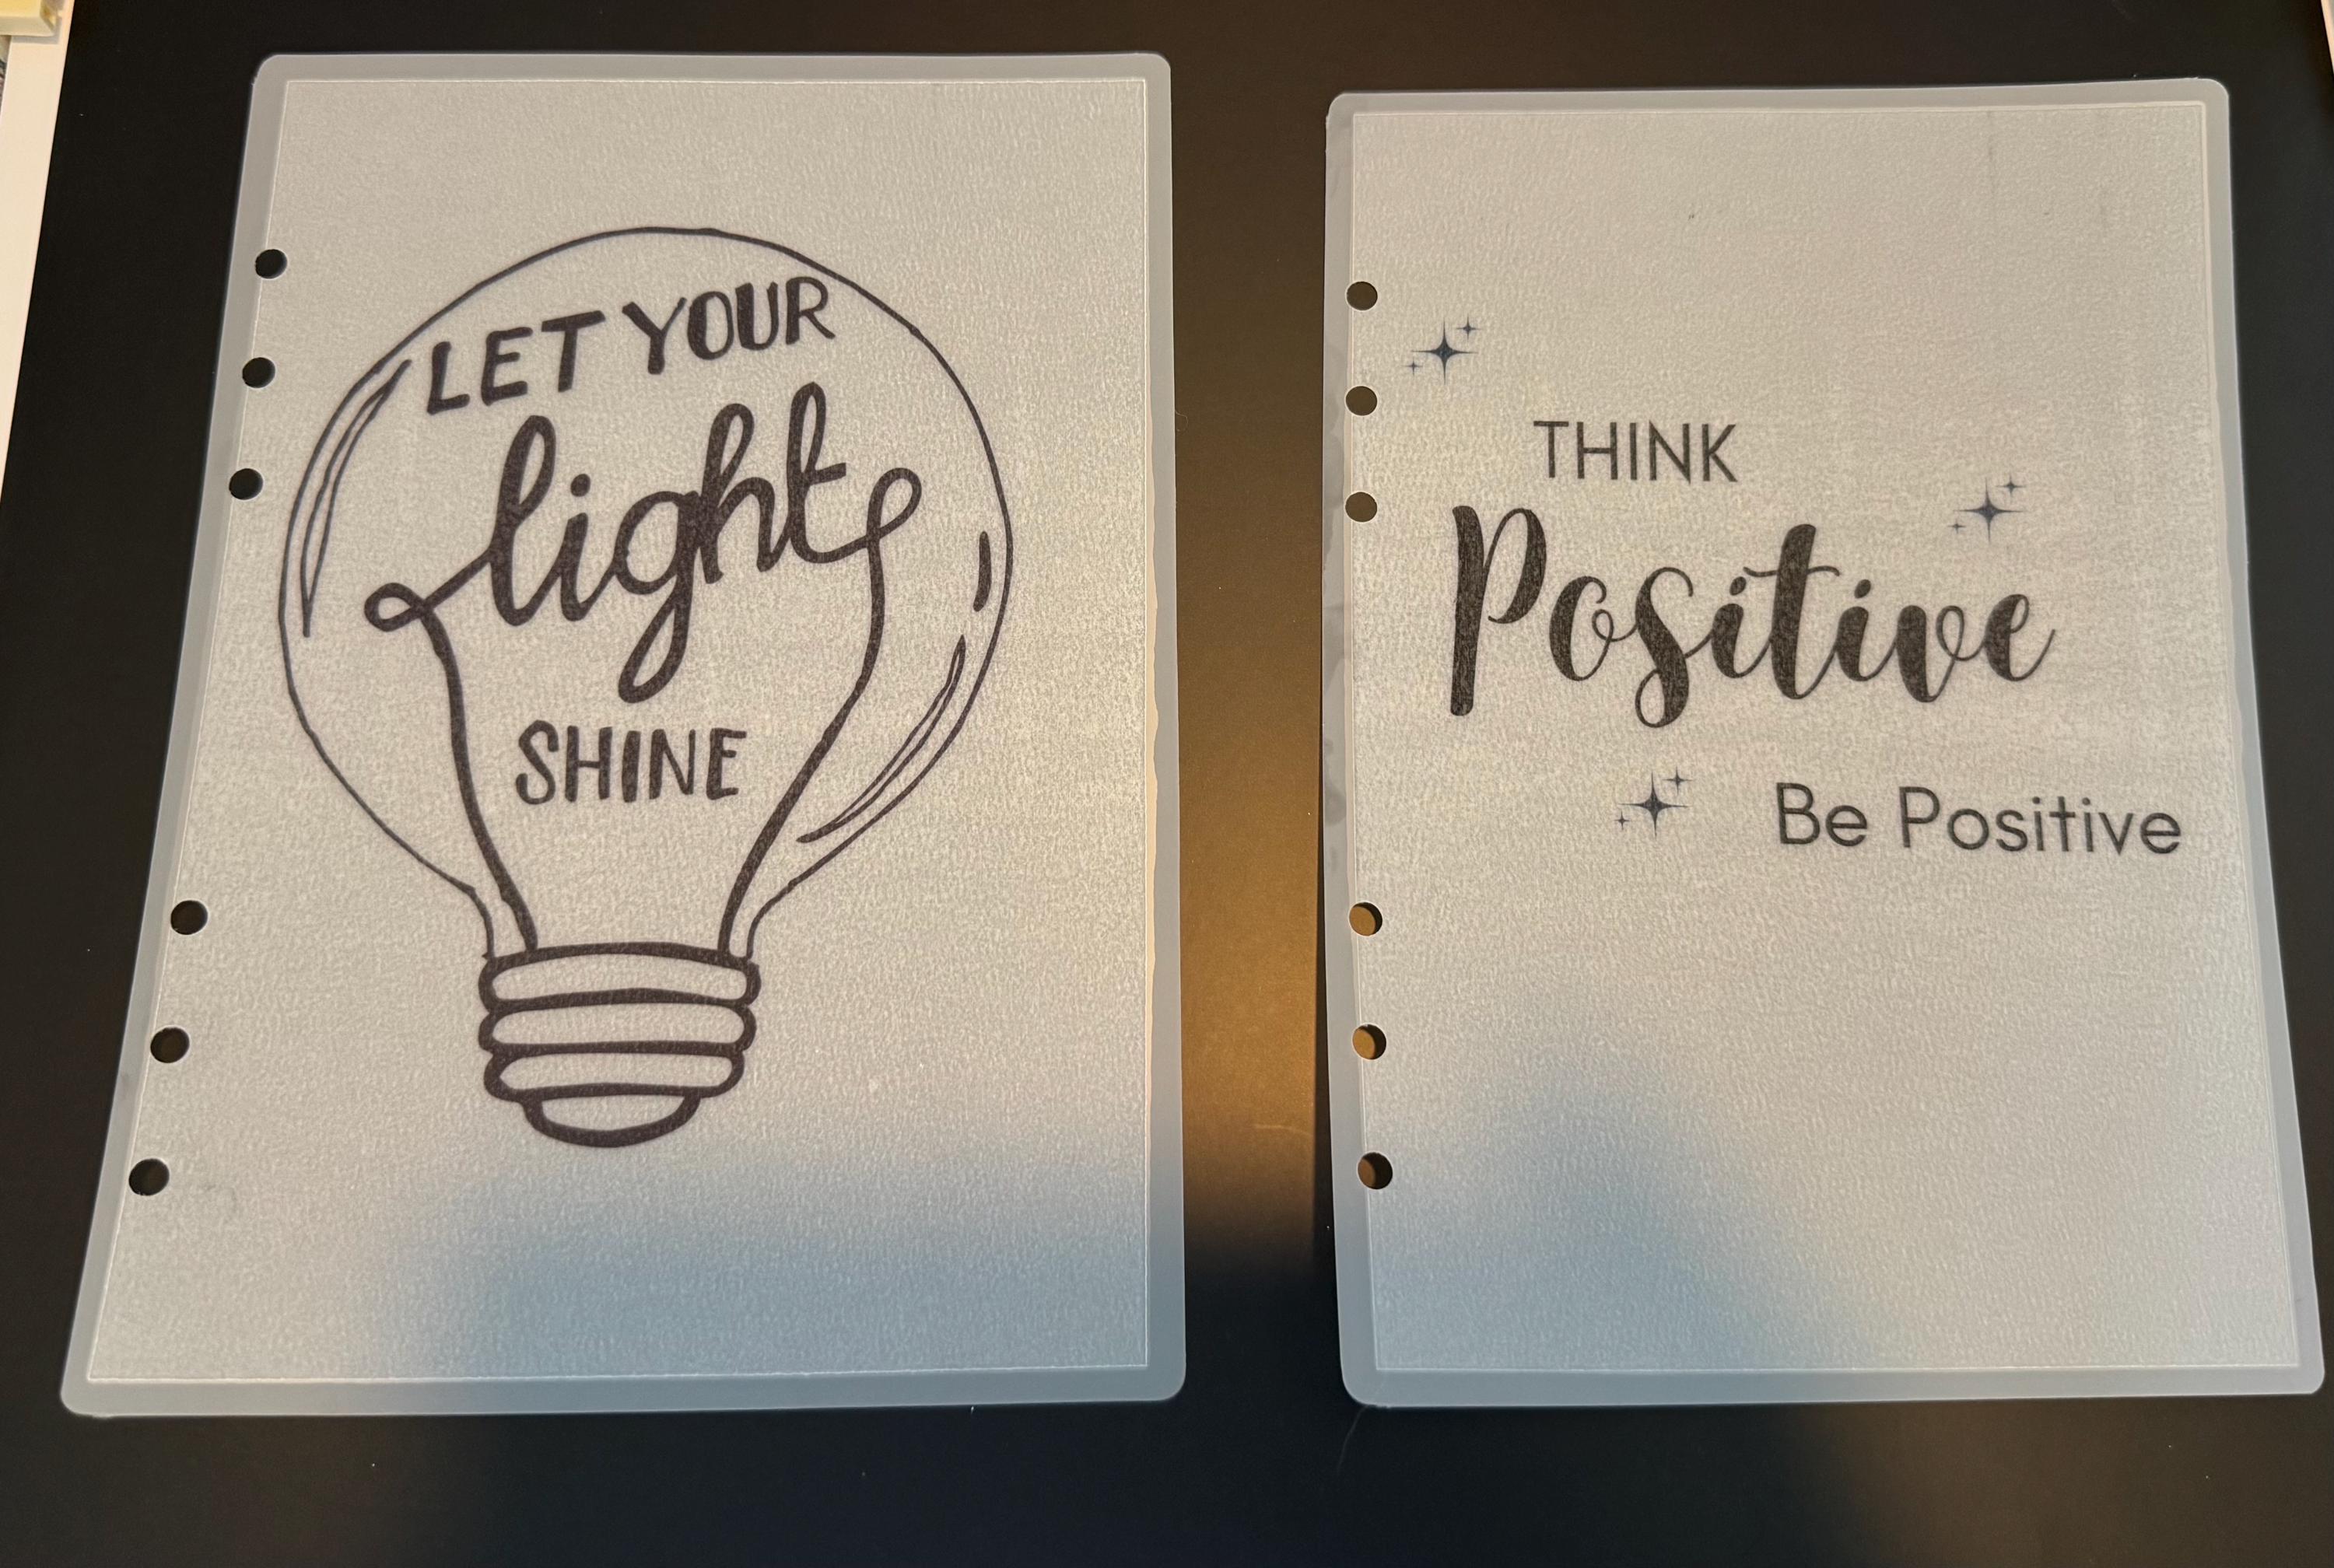 LET YOUR
light
SHINE
THINK
Positive
Be Positive